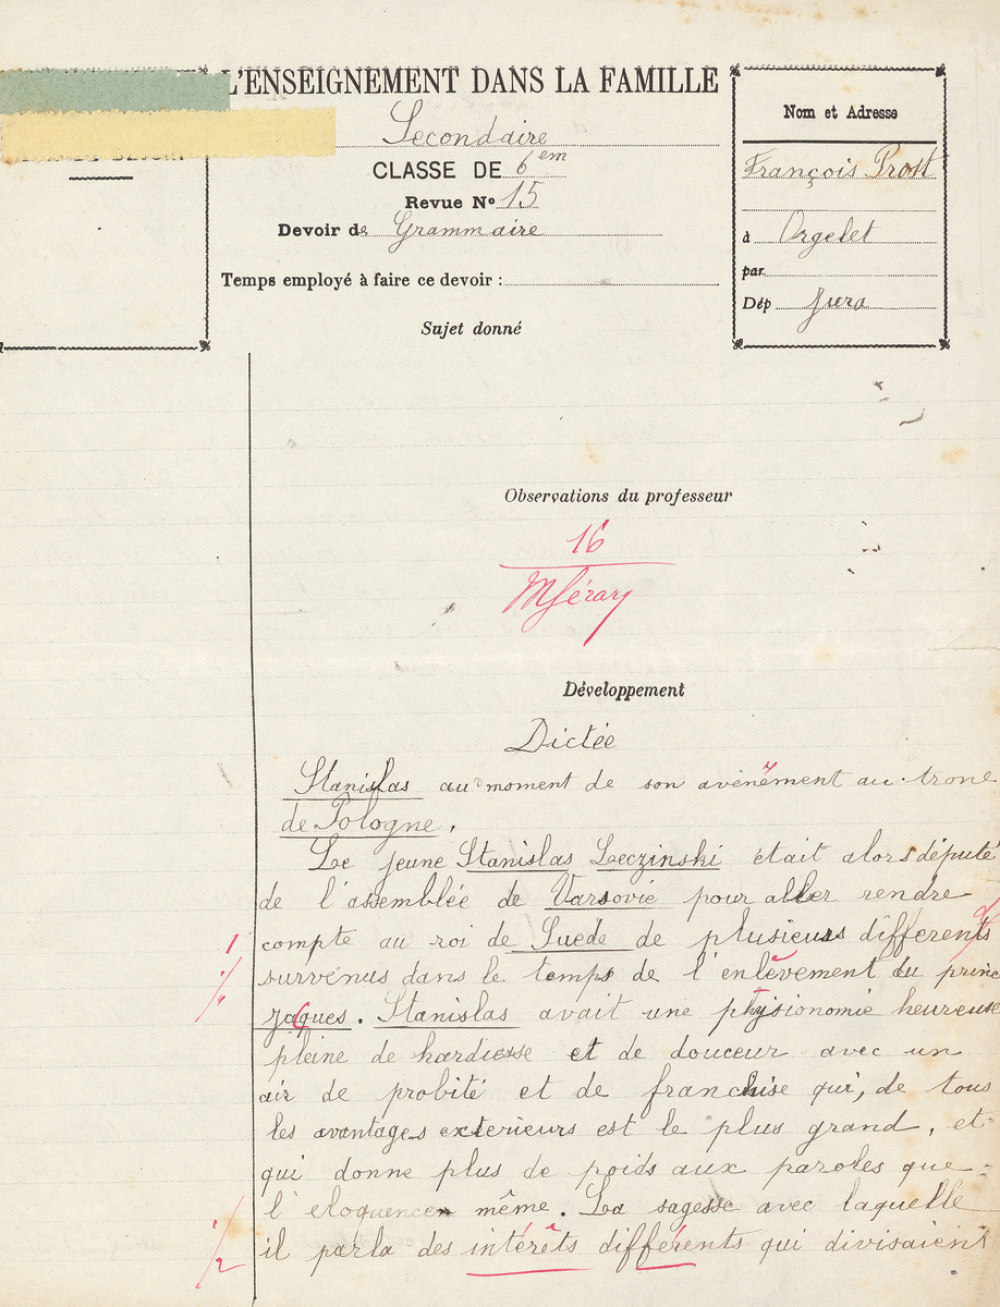 L'ENSEIGNEMENT DANS LA FAMILLE
Secondaire
CLASSE DE 6em
Revue No 15
Devoir de Grammaire
Temps employé à faire ce devoir :
Nom et Adresse
François Prost
à Orgelet
par
Dép Jura
Sujet donné
Observations du professeur
16
Développement
Dictée
Stanislas au moment de son avènement au trone
de Pologne.
Le jeune Stanislas Leczinski était alors député
de l'assemblée de Varsovie pour aller rendre
1 compte au roi de Suede de plusieurs différents
survenus dans le temps de l'enlèvement du prince
Jaques. Stanislas avait une physionomie heureuse
pleine de hardiesse et de douceur avec un
air de probité et de franchise qui, de tous
les avantages exterieurs est le plus grand, et
qui donne plus de poids aux paroles que
l'eloquence même. La sagesse avec laquelle
il parla des intérêts différents qui divisaient